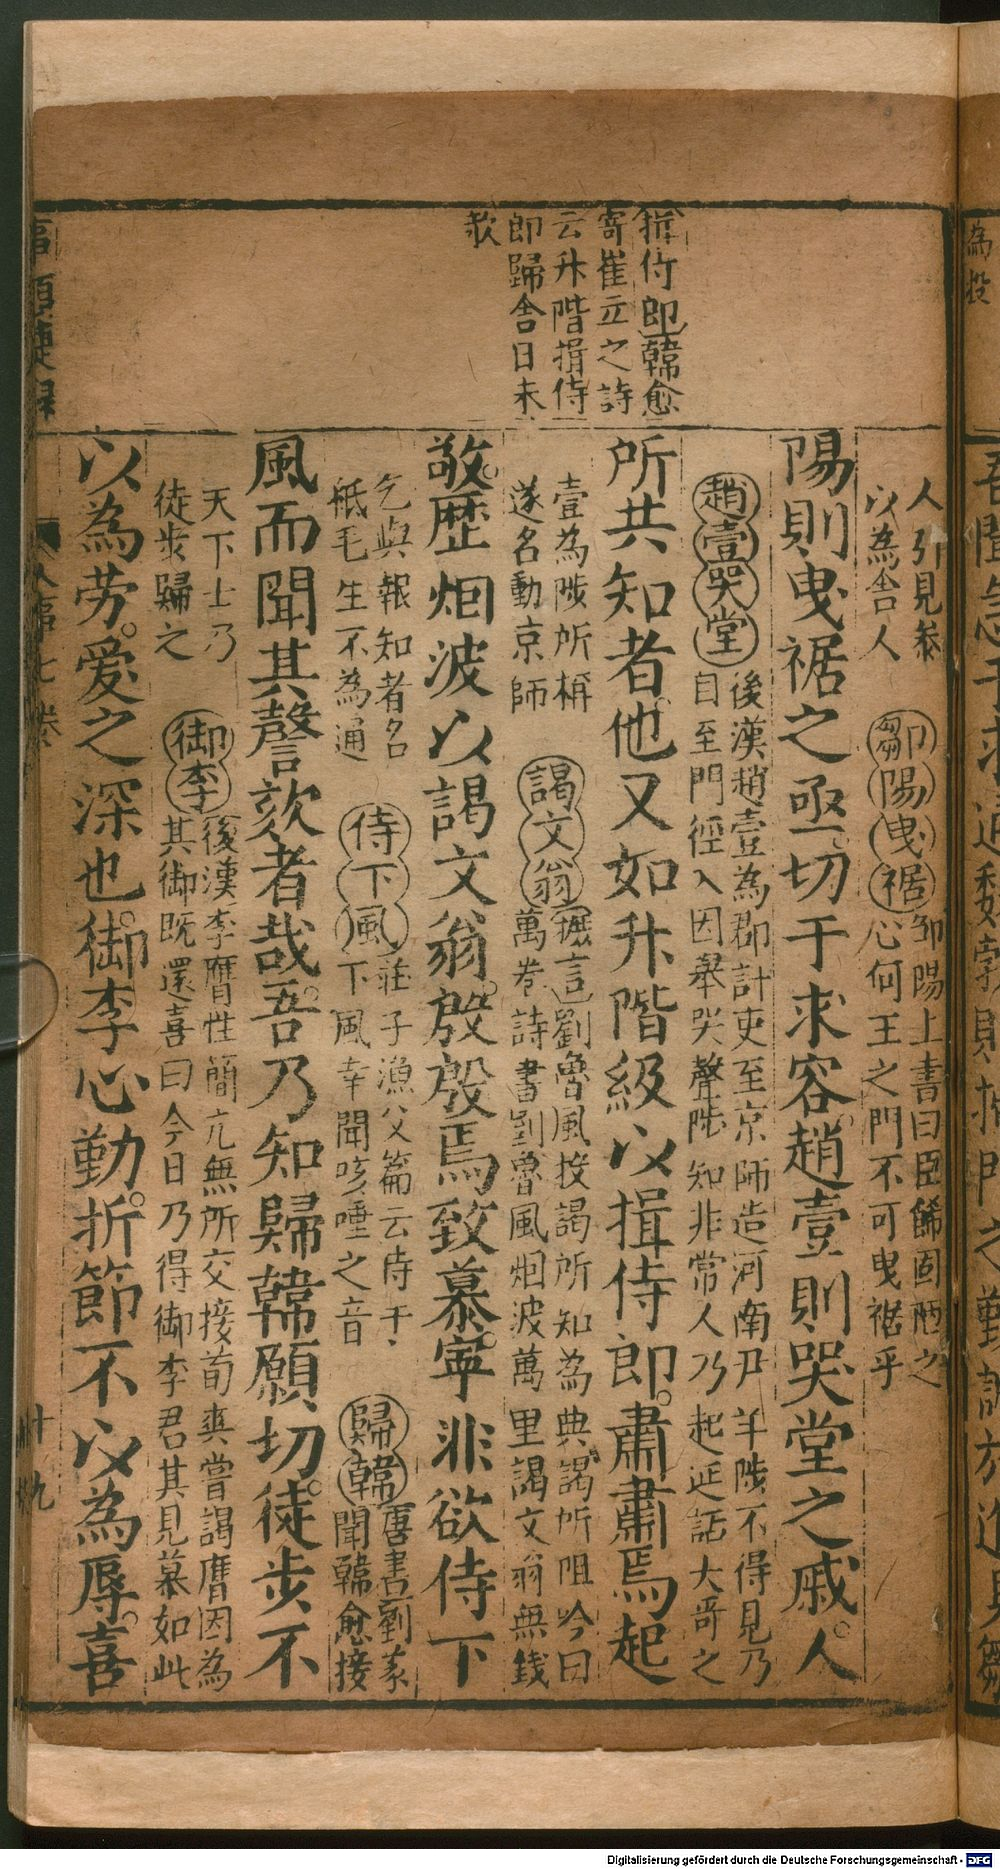 揖侍郎韓愈
寄崔立之詩
云升階揖侍
即歸舍日未
欸
人引見㕘
以為舍人
鄒陽曳裾
鄒陽上書曰臣餙固陋之
心何王之門不可曳裾乎
陽則曳裾之亟切于求容趙壹則哭堂之戚人
趙壹哭堂
後漢趙壹為郡計吏至京師造河南尹羊陟不得見乃
自至門徑入因舉哭聲陟知非常人乃起延話大竒之
所共知者他又如升階級以揖侍郎肅肅焉起
壹為陟所稱
遂名動京師
謁文翁
摭言劉魯風投謁所知為典謁所阻吟曰
萬卷詩書劉魯風烟波萬里謁文翁無錢
敬歷烟波以謁文翁殷殷焉致慕寧非欲侍下
乞與報知者名
紙毛生不為通
侍下風
莊子漁父篇云侍于
下風幸聞咳唾之音
歸韓
唐書劉义
聞韓愈接
風而聞其謦欬者哉吾乃知歸韓願切徒步不
天下士乃
徒步歸之
御李
後漢李膺性簡亢無所交接荀爽嘗謁膺因為
其御既還喜曰今日乃得御李君其見慕如此
以為劳愛之深也御李心勤折節不以為辱喜
事類捷録
人事七卷
十九
為投
Digitalisierung gefördert durch die Deutsche Forschungsgemeinschaft - DFG